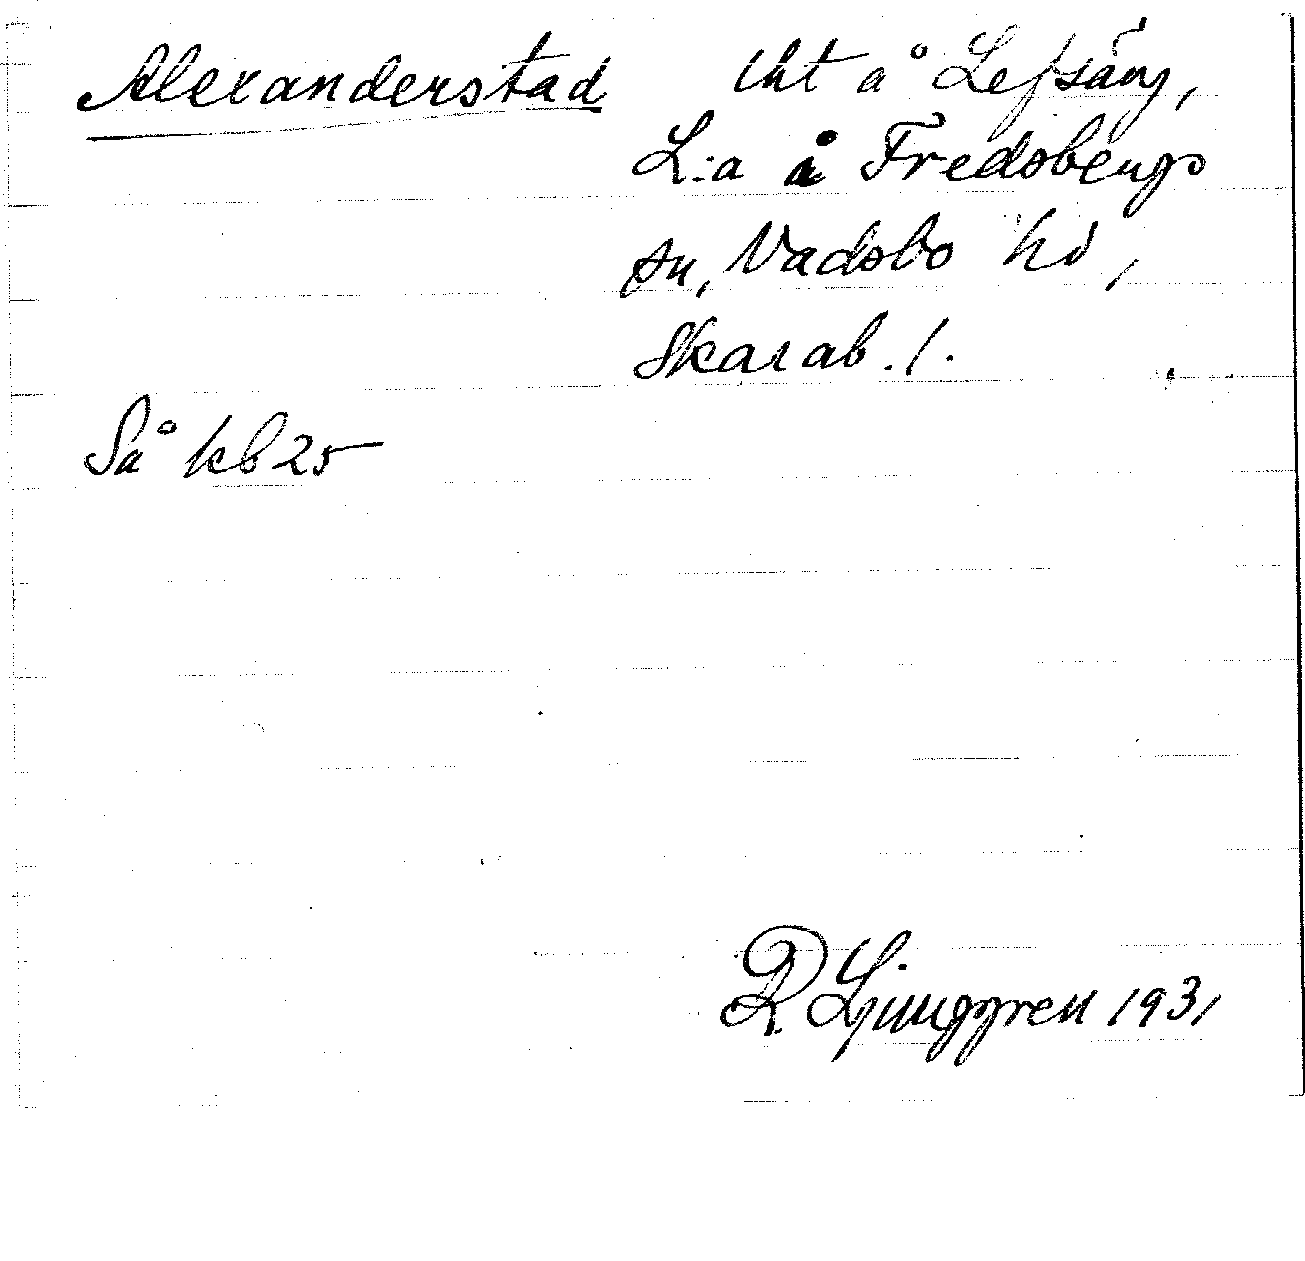 Alexanderstad lht å Lefsäng,
L:a å Fredsbergs
sn, Vadsbo hd,
Skarab. l.
Så kb 25
R Ljunggren 1931